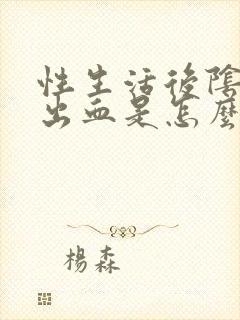 性生活後陰
出血是怎麼
楊森